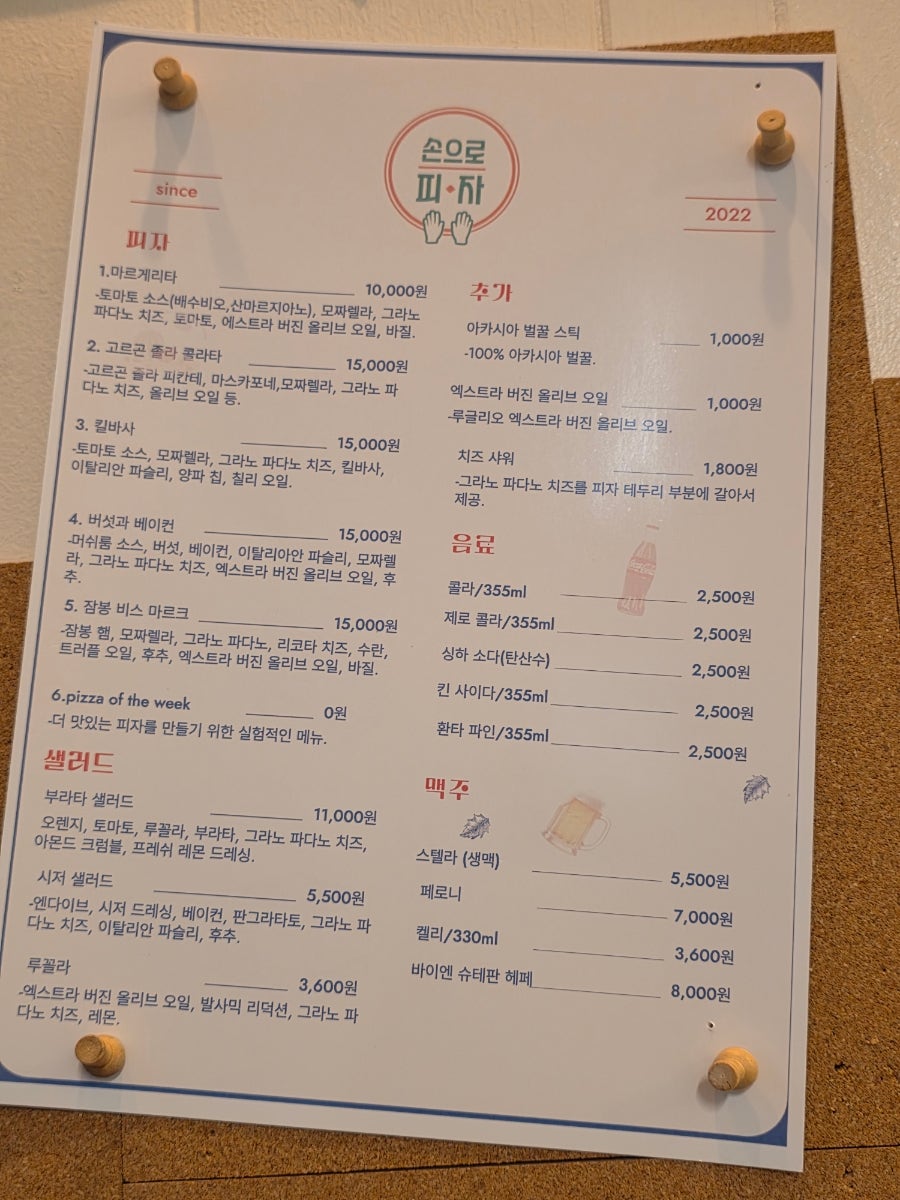 손으로
피·자
since
2022
피자
1.마르게리타 10,000원
-토마토 소스(배수비오,산마르지아노), 모짜렐라, 그라노
파다노 치즈, 토마토, 에스트라 버진 올리브 오일, 바질.
2. 고르곤 졸라 콜라타 15,000원
-고르곤 졸라 피칸테, 마스카포네,모짜렐라, 그라노 파
다노 치즈, 올리브 오일 등.
3. 킬바사 15,000원
-토마토 소스, 모짜렐라, 그라노 파다노 치즈, 킬바사,
이탈리안 파슬리, 양파 칩, 칠리 오일.
4. 버섯과 베이컨 15,000원
-머쉬룸 소스, 버섯, 베이컨, 이탈리아안 파슬리, 모짜렐
라, 그라노 파다노 치즈, 엑스트라 버진 올리브 오일, 후
추.
5. 잠봉 비스 마르크 15,000원
-잠봉 햄, 모짜렐라, 그라노 파다노, 리코타 치즈, 수란,
트러플 오일, 후추, 엑스트라 버진 올리브 오일, 바질.
6.pizza of the week 0원
-더 맛있는 피자를 만들기 위한 실험적인 메뉴.
샐러드
부라타 샐러드 11,000원
오렌지, 토마토, 루꼴라, 부라타, 그라노 파다노 치즈,
아몬드 크럼블, 프레쉬 레몬 드레싱.
시저 샐러드 5,500원
-엔다이브, 시저 드레싱, 베이컨, 판그라타토, 그라노 파
다노 치즈, 이탈리안 파슬리, 후추.
루꼴라 3,600원
-엑스트라 버진 올리브 오일, 발사믹 리덕션, 그라노 파
다노 치즈, 레몬.
추가
아카시아 벌꿀 스틱 1,000원
-100% 아카시아 벌꿀.
엑스트라 버진 올리브 오일 1,000원
-루글리오 엑스트라 버진 올리브 오일.
치즈 샤워 1,800원
-그라노 파다노 치즈를 피자 테두리 부분에 갈아서
제공.
음료
콜라/355ml 2,500원
제로 콜라/355ml 2,500원
싱하 소다(탄산수) 2,500원
킨 사이다/355ml 2,500원
환타 파인/355ml 2,500원
맥주
스텔라 (생맥) 5,500원
페로니 7,000원
켈리/330ml 3,600원
바이엔 슈테판 헤페 8,000원